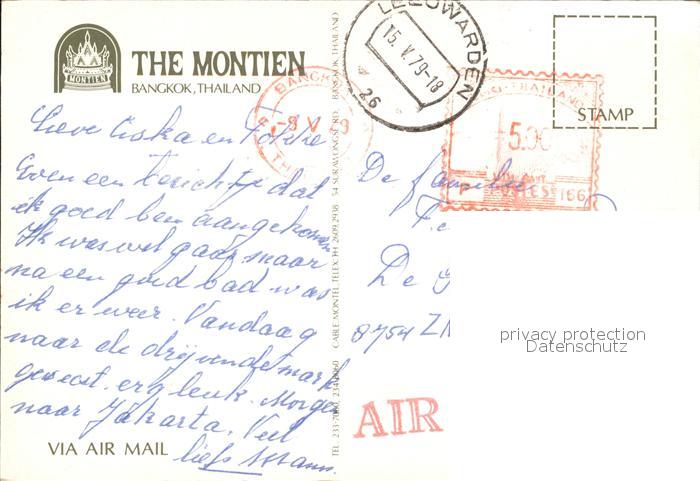 THE MONTIEN
BANGKOK, THAILAND
MONTIEN
Lieve Ciska en Fokke
Even een berichtje dat
ik goed ben aangekomen
Ik was wel gaar maar
na een goed bad was
ik er weer. Vandaag
naar de drijvende markt
geweest. erg leuk. Morgen
naar Jakarta. Veel
liefs
VIA AIR MAIL
54 SURAWONGSE RD. BANGKOK, THAILAND
CABLE: MONTEL, TELEX: TH 2609, 2938
TEL. 233-7060, 234-8060
BANGKOK
-9 V 9
LEEUWARDEN
15. V.79-18
26
THAILAND
5.00
166
STAMP
De familie
De
8754
AIR
privacy protection
Datenschutz